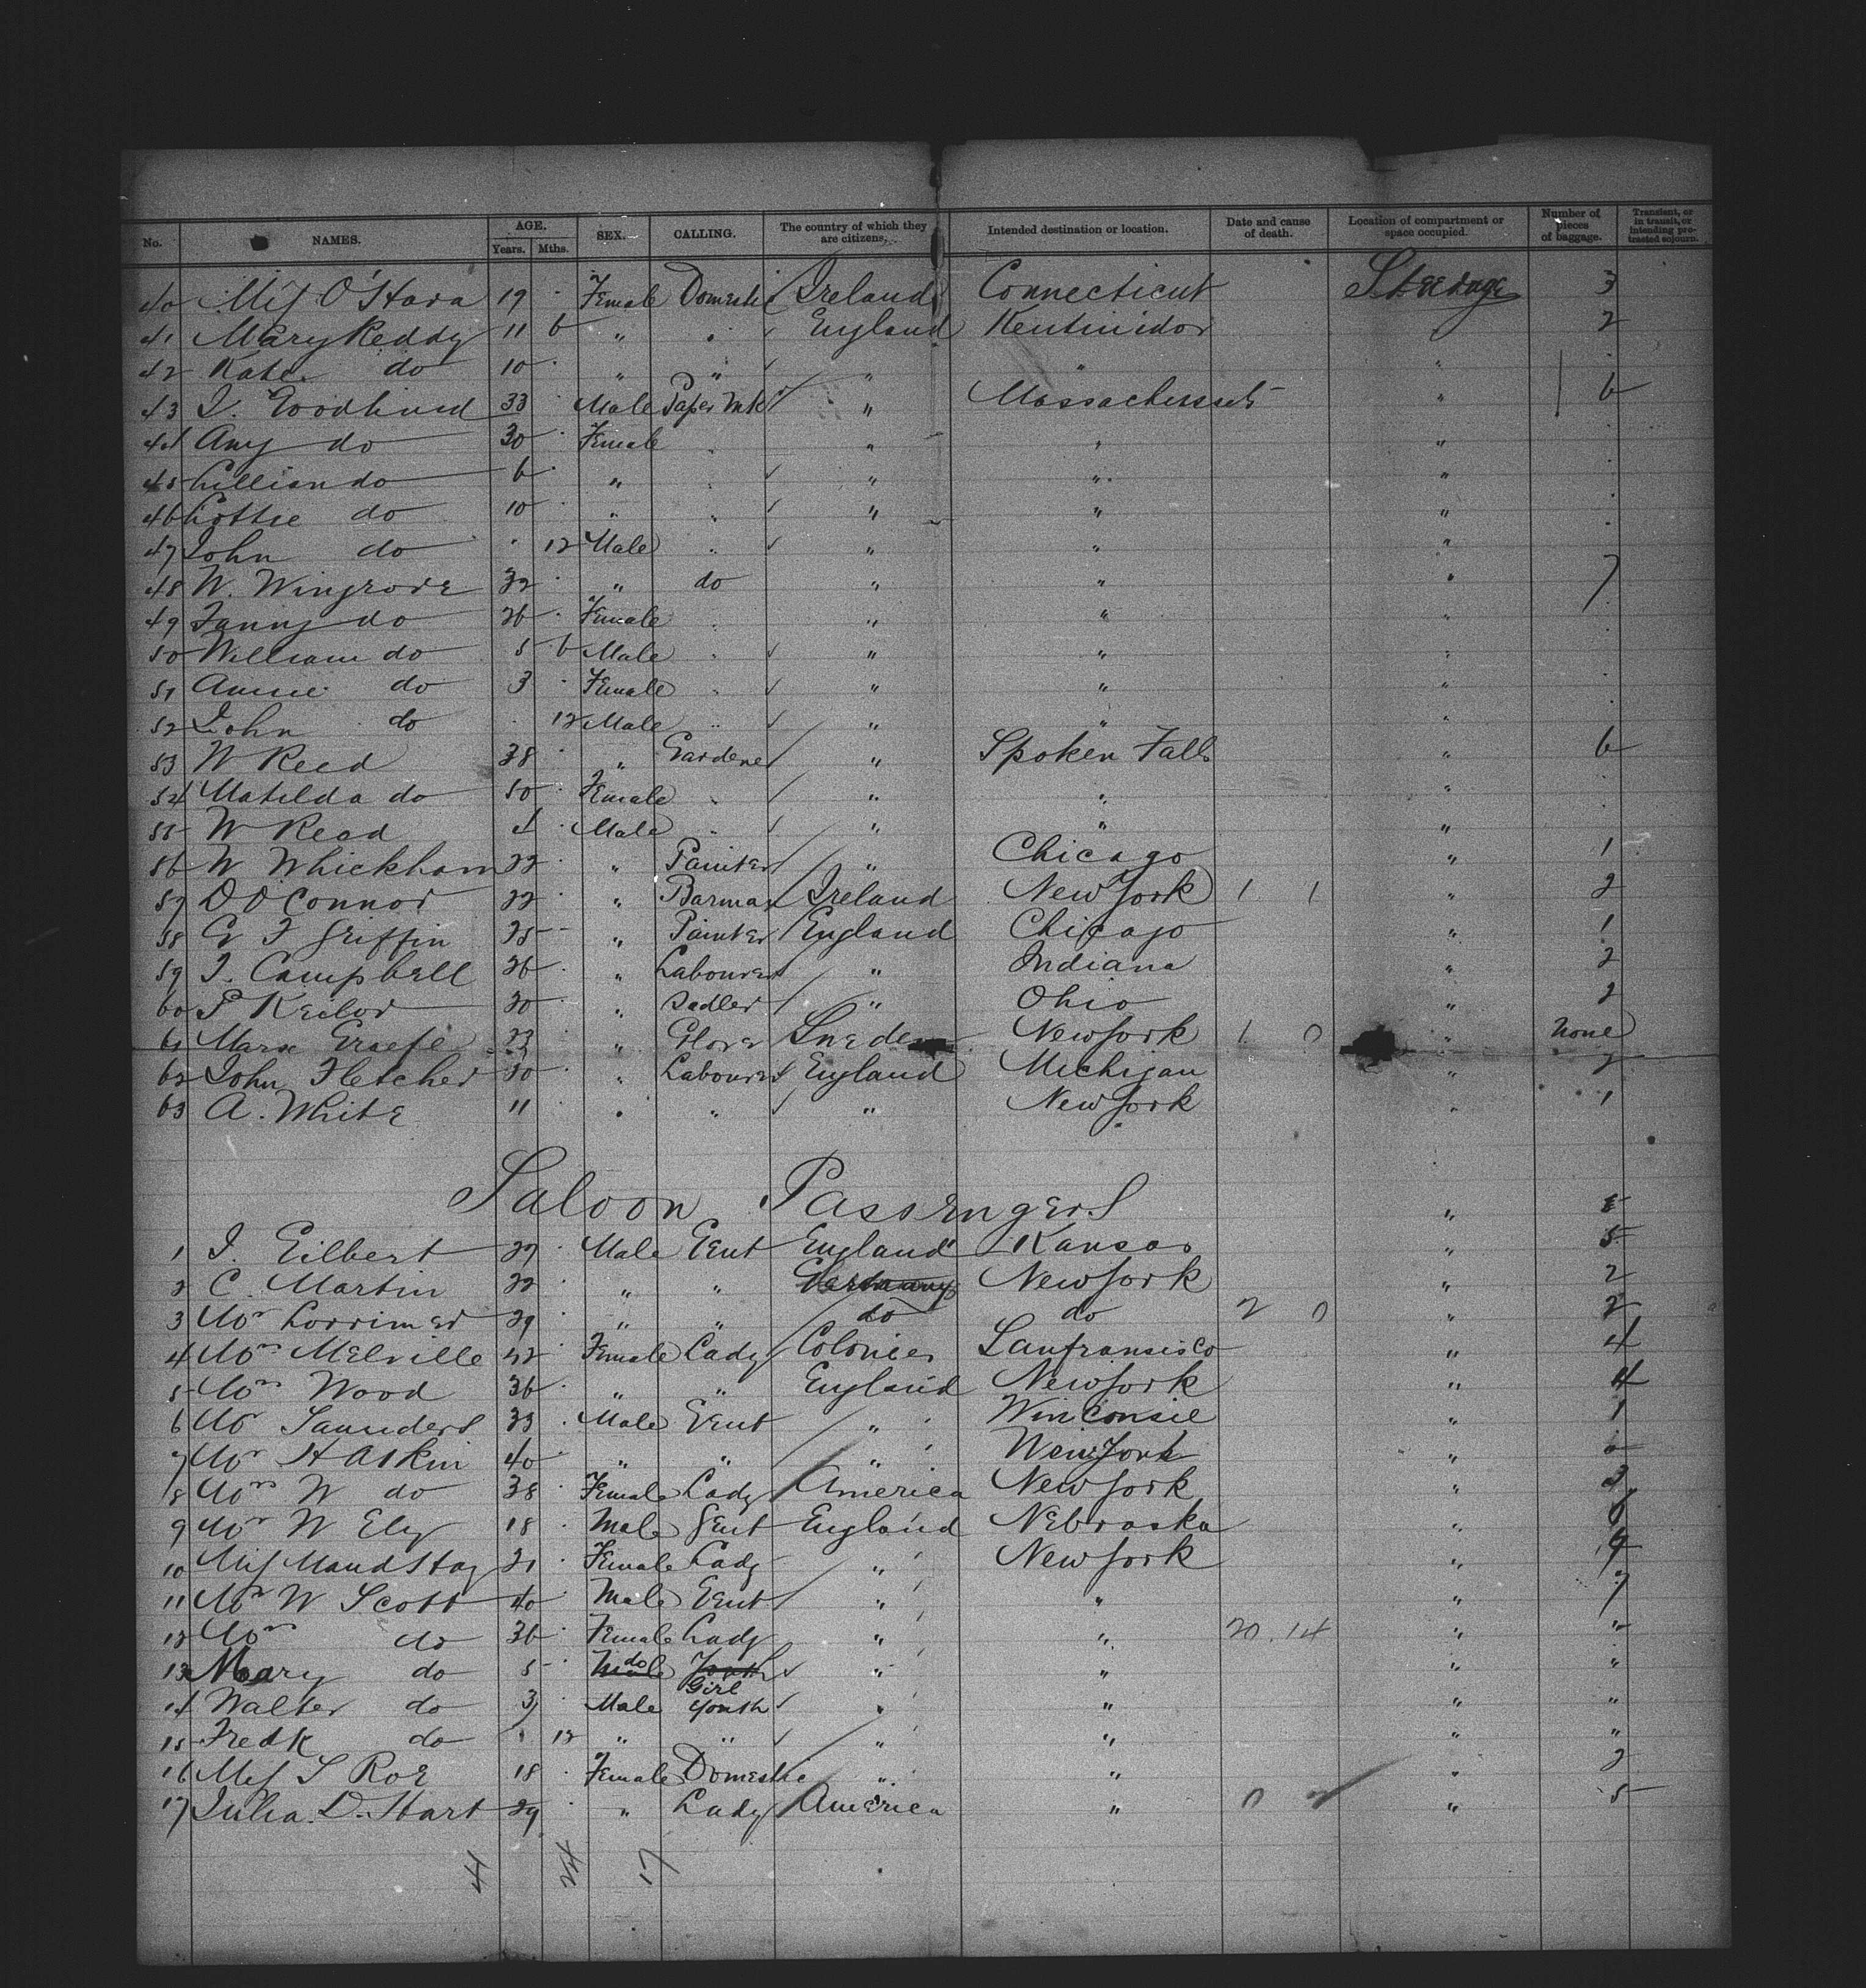 No. NAMES. AGE. Years. Mths. SEX. CALLING. The country of which they are citizens. Intended destination or location. Date and cause of death. Location of compartment or space occupied. Number of pieces of baggage. Transient, or in transit, or intending protracted sojourn.
40 Miſs O'Hara 19 Female Domestic Ireland Connecticut Steerage 3
41 Mary Reddy 11 6 " " England 2
42 Kate do 10 " " " " "
43 J. Goodhind 33 Male Paper Mk " Massachussets " 6
44 Amy do 30 Female " " " "
45 Lillian do 6 " " " " "
46 Lottie do 10 " " " " "
47 John do 12 Male " " " "
48 W. Wingrove 32 " do " " " 7
49 Fanny do 26 Female " " " "
50 William do 5 6 Male " " " "
51 Annie do 3 Female " " " "
52 John do 12 Male " " " "
53 W Reed 38 " Gardener " Spoken Falls " 6
54 Matilda do 50 Female " " " "
55 W Read 4 Male " " " "
56 W Whickham 22 " Painter " Chicago " 1
57 D O Connor 22 " Barman Ireland New York 1 1 " 2
58 G F Griffin 25 " Painter England Chicago " 1
59 J. Campbell 26 " Labourer " Indiana " 2
60 P Keilor 20 " Sadler " Ohio " 2
61 Marx Graefe 23 " Glover Sweden New York 1 0 " None
62 John Fletcher 30 " Labourer England Michigan " 2
63 A. White 11 " " " New York " 1
Saloon Passengers "
1 J. Gilbert 27 Male Gent England Kansas " 5
2 C. Martin 22 " " Germany New York " 2
3 Mr Lorrimer 29 " " do do 2 0 " 2
4 Mrs Melville 42 Female Lady Colonies Sanfransisco " 4
5 Mrs Wood 36 " " England New York " 4
6 Mr Saunders 33 Male Gent " Winconsie " 1
7 Mr H Askin 40 " " " New York "
8 Mrs W do 38 Female Lady America New York " 3
9 Mr W Ely 18 Male Gent England Nebraska " 6
10 Miſs Maud Hay 21 Female Lady " New York " 4
11 Mr W Scott 40 Male Gent " " " 7
12 Mrs do 36 Female Lady " " 20 . 14 " "
13 Mary do 5 Male do Youth Girl " " " "
14 Walter do 3 Male Youth " " " "
15 Fredk do 12 " " " " " "
16 Miſs S Roe 18 Female Domestic " " " 2
17 Julia. D. Hart 29 " Lady America " 0 2 " 5
41 24 17